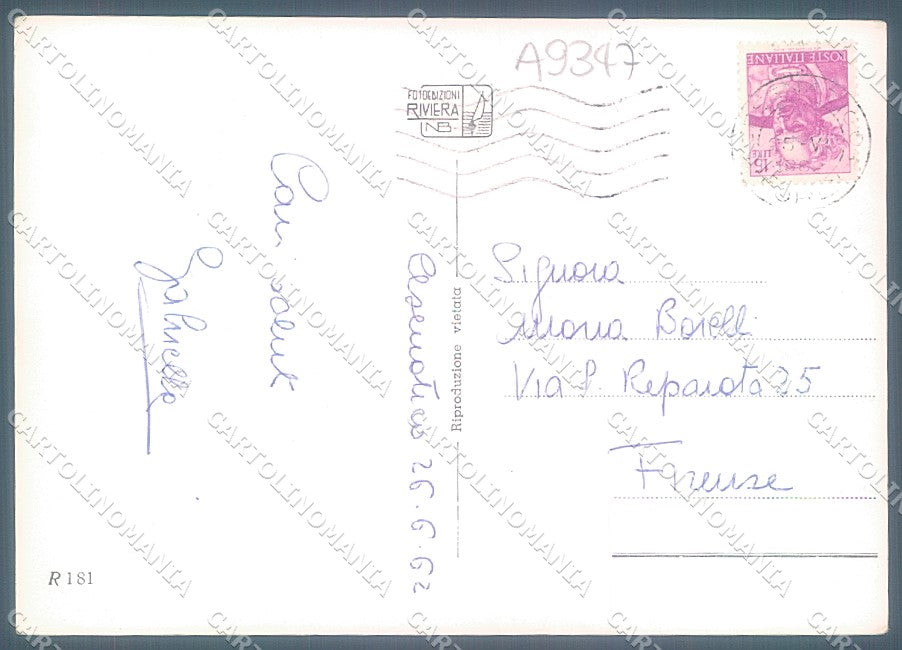 A9347
FOTOEDIZIONI
RIVIERA
NB.
POSTE ITALIANE
LIRE 15
Cari saluti
Cesenatico 26.6.62
Riproduzione vietata
Signora
Maria Borelli
Via S. Reparata 25
Firenze
R 181
CARTOLINOMANIA